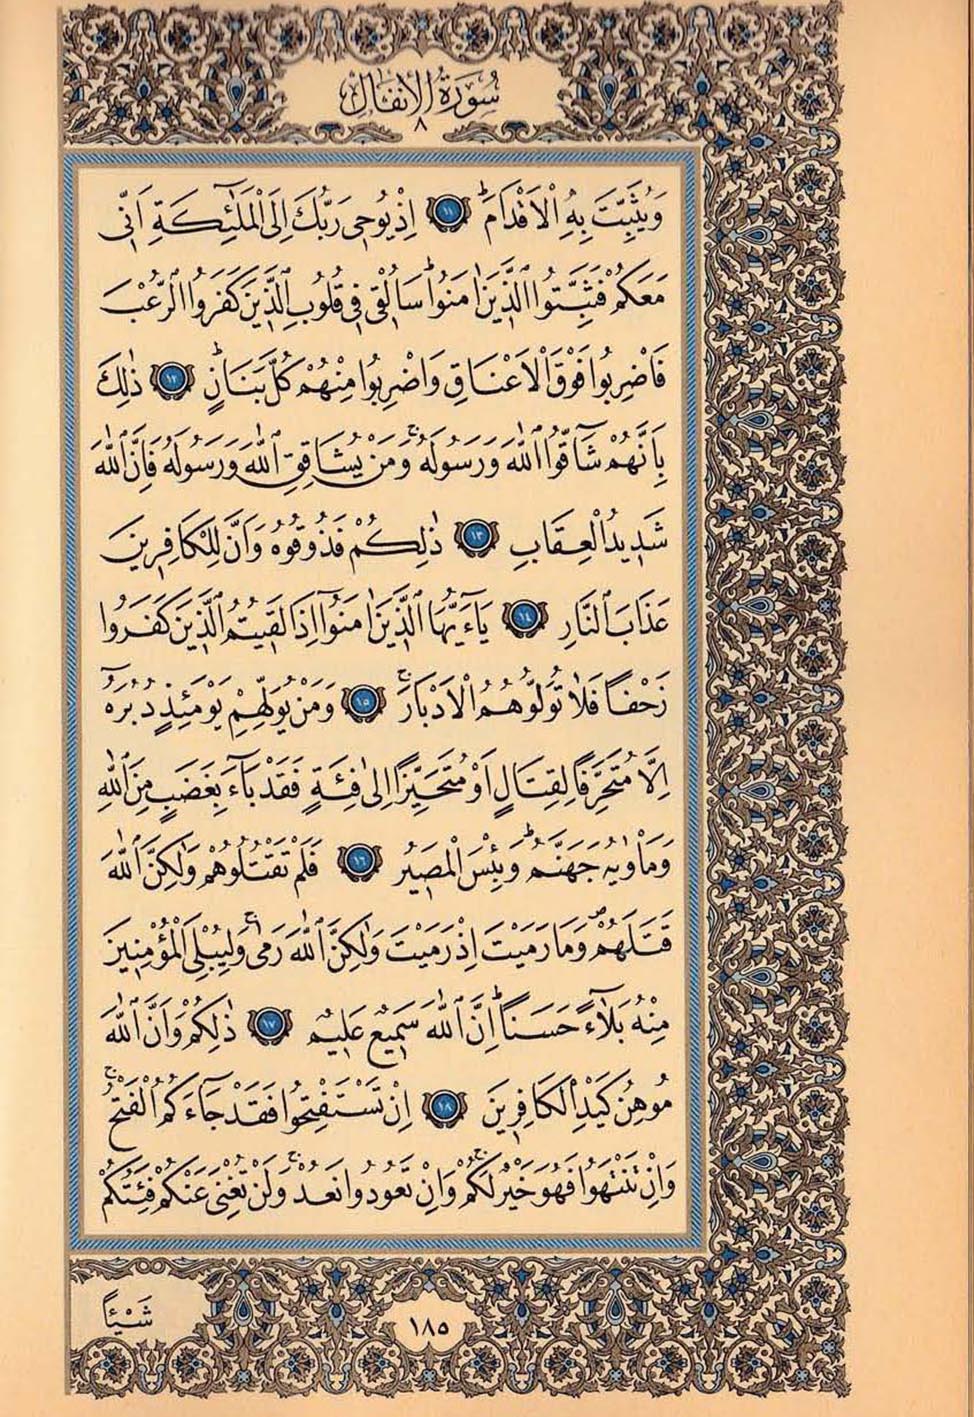 سُورَةُ الْأَنْفَالِ
٨
وَيُثَبِّتَ بِهِ الْاَقْدَامَ ۜ ١١ اِذْ يُوحِى رَبُّكَ اِلَى الْمَلٰٓئِكَةِ اَنّٖى
مَعَكُمْ فَثَبِّتُوا الَّذٖينَ اٰمَنُواۜ سَاُلْقٖى فٖى قُلُوبِ الَّذٖينَ كَفَرُوا الرُّعْبَ
فَاضْرِبُوا فَوْقَ الْاَعْنَاقِ وَاضْرِبُوا مِنْهُمْ كُلَّ بَنَانٍۜ ١٢ ذٰلِكَ
بِاَنَّهُمْ شَٓاقُّوا اللّٰهَ وَرَسُولَهُۚ وَمَنْ يُشَاقِقِ اللّٰهَ وَرَسُولَهُ فَاِنَّ اللّٰهَ
شَدٖيدُ الْعِقَابِ ١٣ ذٰلِكُمْ فَذُوقُوهُ وَاَنَّ لِلْكَافِرٖينَ
عَذَابَ النَّارِ ١٤ يَٓا اَيُّهَا الَّذٖينَ اٰمَنُٓوا اِذَا لَقٖيتُمُ الَّذٖينَ كَفَرُوا
زَحْفًا فَلَا تُوَلُّوهُمُ الْاَدْبَارَۚ ١٥ وَمَنْ يُوَلِّهِمْ يَوْمَئِذٍ دُبُرَهُٓ
اِلَّا مُتَحَرِّفًا لِقِتَالٍ اَوْ مُتَحَيِّزًا اِلٰى فِئَةٍ فَقَدْ بَٓاءَ بِغَضَبٍ مِنَ اللّٰهِ
وَمَاْوٰيهُ جَهَنَّمُۜ وَبِئْسَ الْمَصٖيرُ ١٦ فَلَمْ تَقْتُلُوهُمْ وَلٰكِنَّ اللّٰهَ
قَتَلَهُمْۖ وَمَا رَمَيْتَ اِذْ رَمَيْتَ وَلٰكِنَّ اللّٰهَ رَمٰىۚ وَلِيُبْلِىَ الْمُؤْمِنٖينَ
مِنْهُ بَلَٓاءً حَسَنًاۜ اِنَّ اللّٰهَ سَمٖيعٌ عَلٖيمٌ ١٧ ذٰلِكُمْ وَاَنَّ اللّٰهَ
مُوهِنُ كَيْدِ الْكَافِرٖينَ ١٨ اِنْ تَسْتَفْتِحُوا فَقَدْ جَٓاءَكُمُ الْفَتْحُۚ
وَاِنْ تَنْتَهُوا فَهُوَ خَيْرٌ لَكُمْۚ وَاِنْ تَعُودُوا نَعُدْۚ وَلَنْ تُغْنِىَ عَنْكُمْ فِئَتُكُمْ
شَيْـًٔا
١٨٥